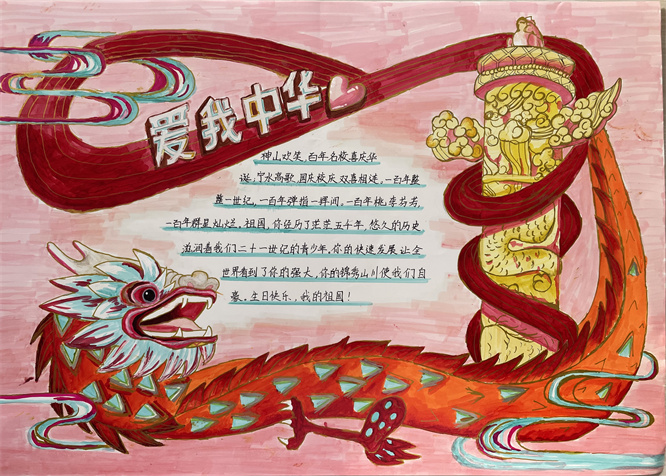 爱我中华
神山欢笑,百年名校喜庆华
诞,宁水高歌,国庆校庆双喜相连,一百年整
整一世纪,一百年弹指一挥间,一百年桃李芬芳,
一百年群星灿烂,祖国,你经历了茫茫五千年,悠久的历史
滋润着我们二十一世纪的青少年,你的快速发展让全
世界看到了你的强大,你的锦秀山川使我们自
豪,生日快乐,我的祖国!